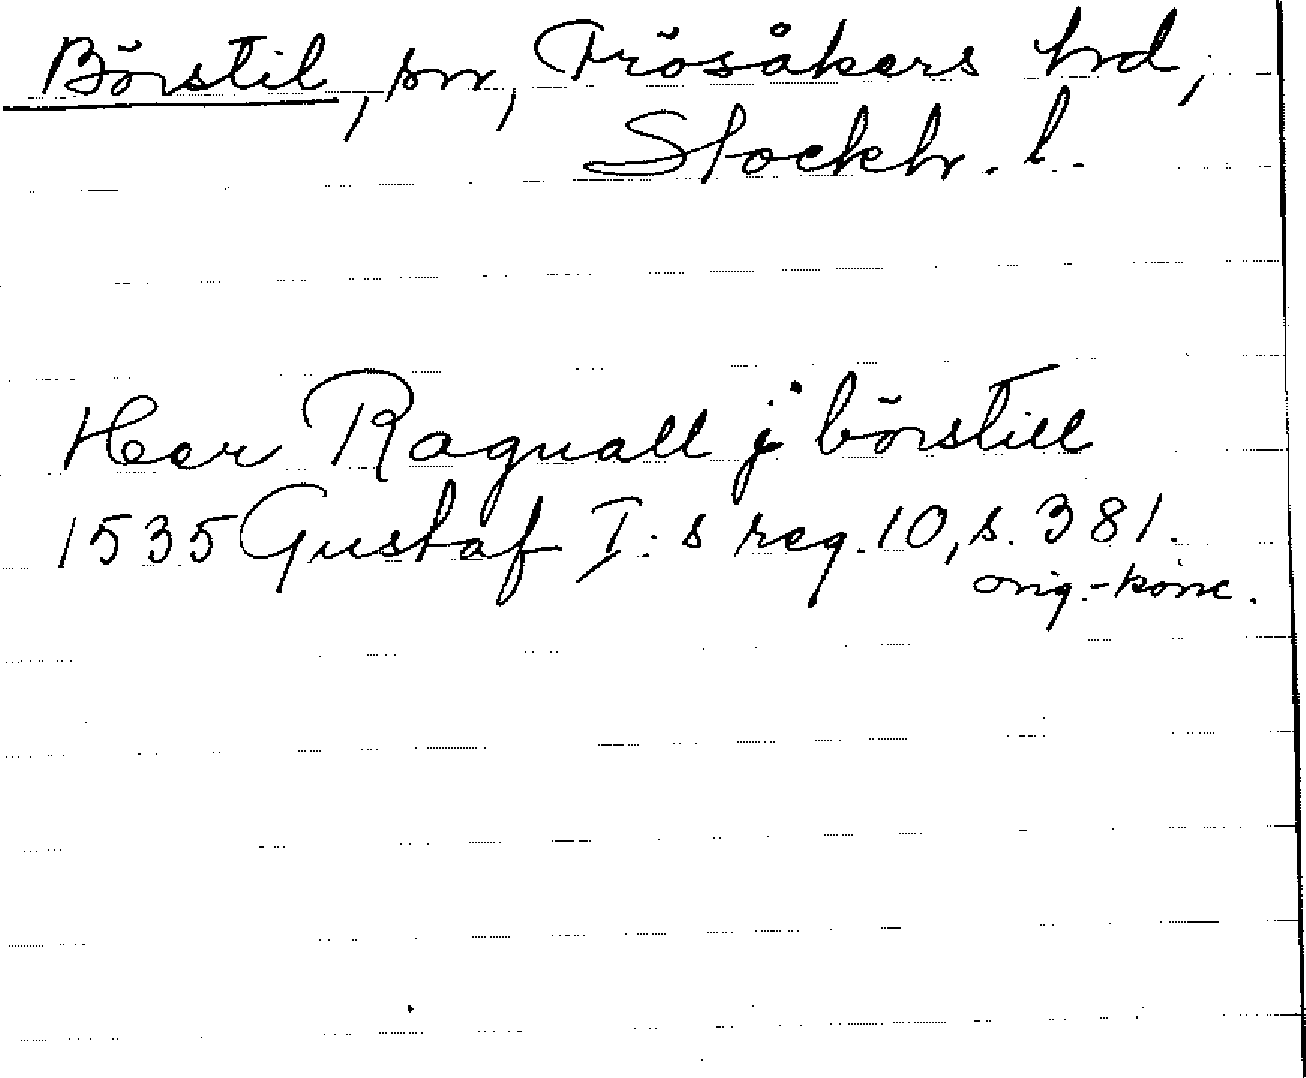 Börstil, sn, Frösåkers hrd,
Stockh. l.
Herr Raguall j börstill
1535 Gustaf I:s reg. 10, s. 381.
orig.-konc.